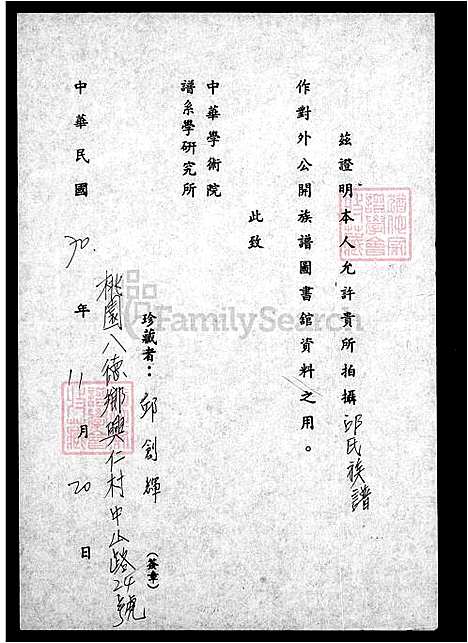 茲證明本人允許貴所拍攝邱氏族譜
作對外公開族譜圖書館資料之用。
此致
中華學術院
譜系學研究所
珍藏者：邱創輝(簽章)
桃園八德鄉興仁村中山路24號
中華民國70.年11月20日
FamilySearch